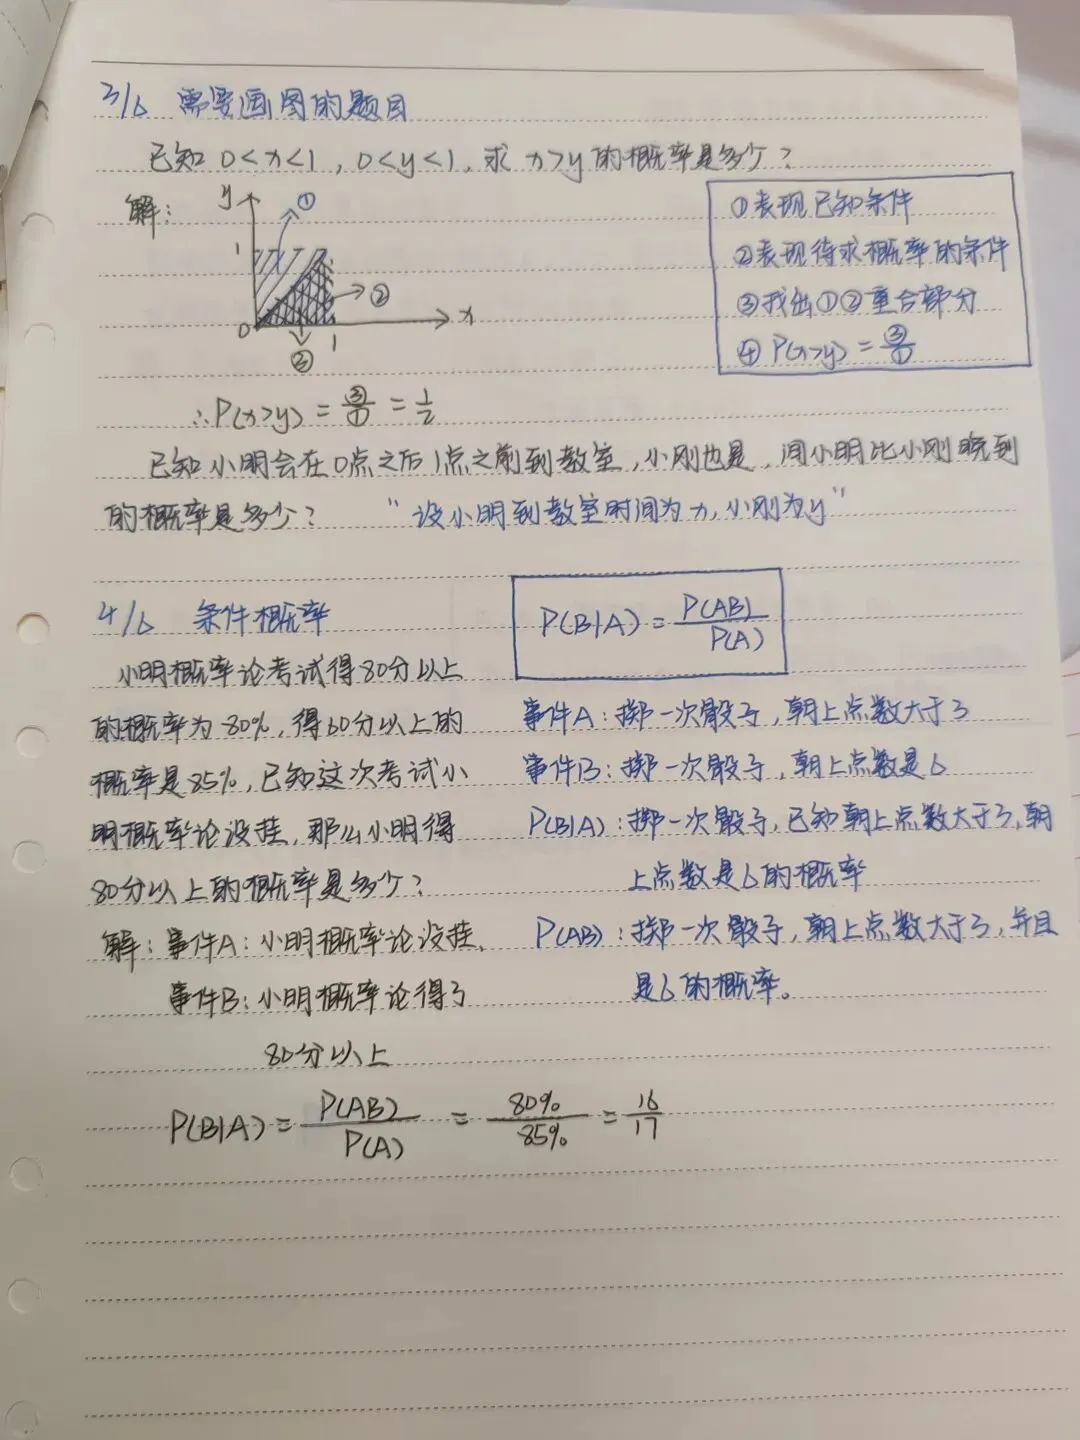 3/6 需要画图的题目
已知 0<x<1, 0<y<1, 求 x>y 的概率是多少?
解:
y
①
1
②
0
1
x
③
①表现已知条件
②表现待求概率的条件
③找出①②重合部分
④ P(x>y) = ③/①
∴P(x>y) = ③/① = 1/2
已知小明会在0点之后1点之前到教室,小刚也是,问小明比小刚晚到
的概率是多少? “设小明到教室时间为x,小刚为y”
4/6 条件概率
P(B|A) = P(AB)/P(A)
小明概率论考试得80分以上
的概率为80%,得60分以上的
概率是85%,已知这次考试小
明概率论没挂,那么小明得
80分以上的概率是多少?
解:事件A:小明概率论没挂.
事件B:小明概率论得了
80分以上
事件A:掷一次骰子,朝上点数大于3
事件B:掷一次骰子,朝上点数是6
P(B|A):掷一次骰子,已知朝上点数大于3,朝
上点数是6的概率
P(AB):掷一次骰子,朝上点数大于3,并且
是6的概率。
P(B|A) = P(AB)/P(A) = 80%/85% = 16/17